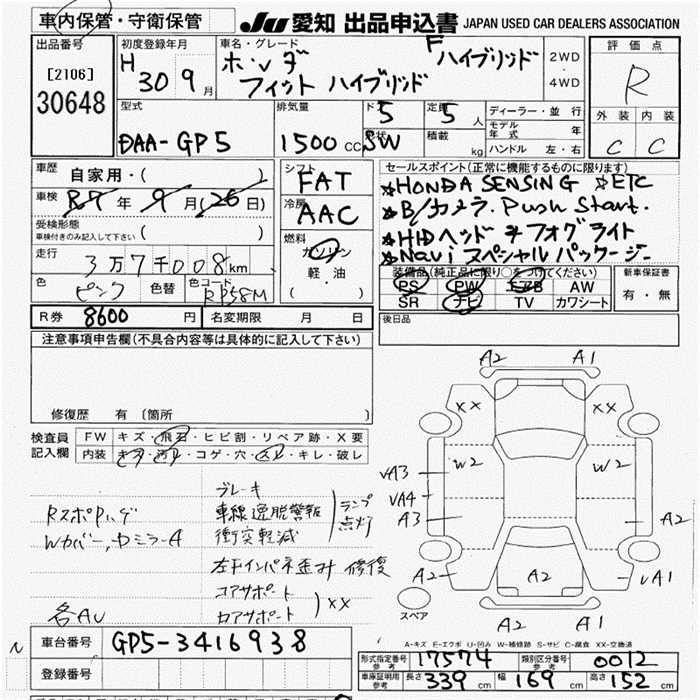 車内保管・守衛保管
JU 愛知 出品申込書 JAPAN USED CAR DEALERS ASSOCIATION
出品番号 [2106] 30648
初度登録年月 H 30 9月
車名・グレード ホンダ F ハイブリッド
フィット ハイブリッド
2WD・4WD
評価点 R
外装 内装
C C
型式 DAA-GP5
排気量 1500 CC
ドア 5
形状 5W
定員 5人
積載 kg
ディーラー・並行
モデル年式 年
ハンドル 左・右
車歴 自家用・( )
車検 R7年 9月(26日)
受検形態
車検付きのみ記入して下さい ( )
走行 3万7千008km
色 ピンク 色替 色コード RP58M
シフト FAT
冷房 AAC
燃料 ガソリン
軽・油
( )
セールスポイント(正常に機能するものに限ります)
☆HONDA SENSING ☆ETC
☆B/カメラ. Push Start.
☆HIDヘッド ☆フォグライト
☆Navi スペシャルパッケージ
装備品(純正品に限り○をつけてください)
PS PW エアB AW
SR ナビ TV カワシート
新車保証書 有・無
R券 8600円 名変期限 月 日
後日品
注意事項申告欄(不具合内容等は具体的に記入して下さい)
修復歴 有〔箇所
検査員記入欄
FW キズ・飛石・ヒビ割・リペア跡・X要
内装 キズ・汚れ・コゲ・穴・スレ・キレ・破レ
ブレーキ
車線逸脱警報
衝突軽減
ランプ点灯
Rスポ
Wカバー, ドミラーA
左Fインパネ歪み 修復
コアサポート
ロアサポート
XX
各AU
A2 A1
XX XX
W2 W2
VA3
VA4
A3 A2
A2 A2 VA1
A2 A1
スペア
A-キズ E-エクボ U-凹み W-補修跡 S-サビ C-腐食 XX-交換済
車台番号 GP5-3416938
登録番号
形式指定番号 参考 17574 類別区分番号 参考 0012
車庫証明用 参考 長さ 339cm 幅 169cm 高さ 152cm